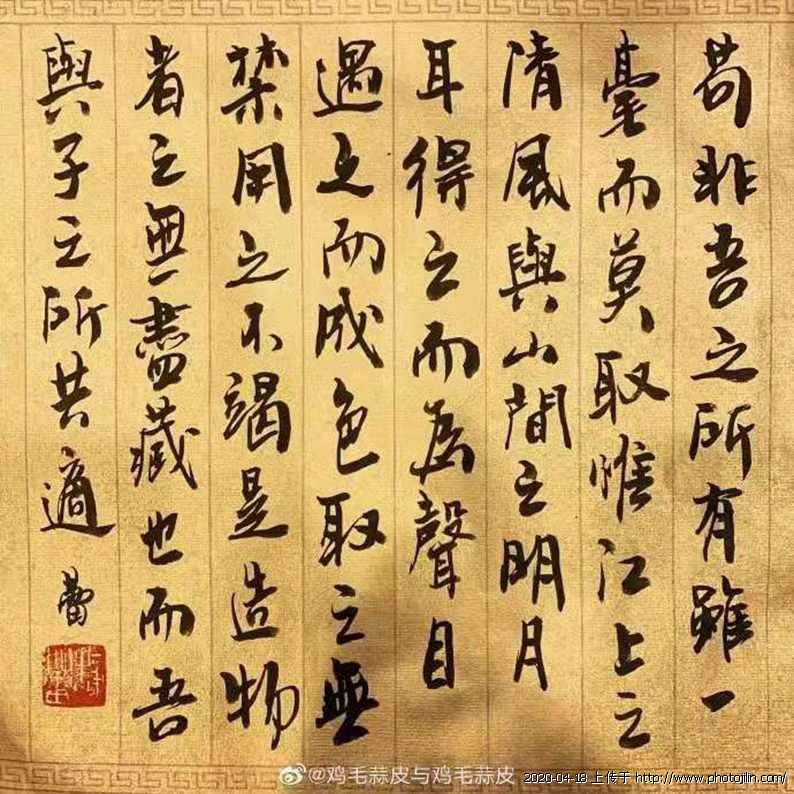 苟非吾之所有雖一
毫而莫取惟江上之
清風與山間之明月
耳得之而為聲目
遇之而成色取之無
禁用之不竭是造物
者之無盡藏也而吾
與子之所共適
蕾
@鸡毛蒜皮与鸡毛蒜皮
2020-04-18 上传于 http://www.photojilin.com/